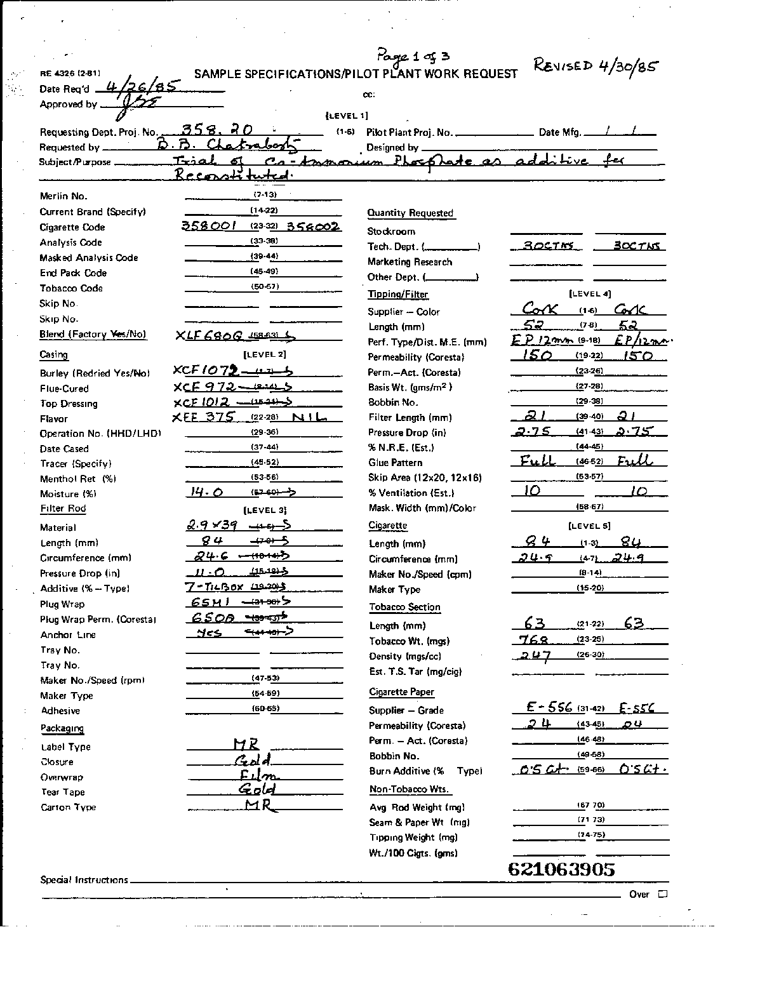 Page 1 of 3
REVISED 4/30/85
RE 4326 (2-81)
SAMPLE SPECIFICATIONS/PILOT PLANT WORK REQUEST
Date Req'd 4/26/85
cc:
Approved by
[LEVEL 1]
Requesting Dept. Proj. No. 358.20 (1-6) Pilot Plant Proj. No. Date Mfg. / /
Requested by B.B. Chakraborty Designed by
Subject/Purpose Trial of Ammonium Phosphate as additive for
Reconstituted.
Merlin No. (7-13)
Current Brand (Specify) (14-22)
Cigarette Code 358001 (23-32) 358002
Analysis Code (33-38)
Masked Analysis Code (39-44)
End Pack Code (45-49)
Tobacco Code (50-57)
Skip No.
Skip No.
Blend (Factory Yes/No) XLF680G (58-63)
Casing [LEVEL 2]
Burley (Redried Yes/No) XCF1072 (1-7)
Flue-Cured XCF972 (8-14)
Top Dressing XCF1012 (15-21)
Flavor XEE 375 (22-28) NIL
Operation No. (HHD/LHD) (29-36)
Date Cased (37-44)
Tracer (Specify) (45-52)
Menthol Ret (%) (53-56)
Moisture (%) 14.0 (57-60)
Filter Rod [LEVEL 3]
Material 2.9x39 (1-6)
Length (mm) 84 (7-9)
Circumference (mm) 24.6 (10-14)
Pressure Drop (in) 11.0 (15-18)
Additive (% – Type) 7-TILBOX (19-30)
Plug Wrap 65M1 (31-38)
Plug Wrap Perm. (Coresta) 6500 (39-43)
Anchor Line Yes (44-46)
Tray No.
Tray No.
Maker No./Speed (rpm) (47-53)
Maker Type (54-59)
Adhesive (60-65)
Packaging
Label Type MR
Closure Gold
Overwrap Film
Tear Tape Gold
Carton Type MR
Quantity Requested
Stockroom
Tech. Dept. ( ) 30CTNS 30CTNS
Marketing Research
Other Dept. ( )
Tipping/Filter [LEVEL 4]
Supplier – Color Cork (1-6) Cork
Length (mm) 52 (7-8) 52
Perf. Type/Dist. M.E. (mm) EP 12mm (9-18) EP/12mm.
Permeability (Coresta) 150 (19-22) 150
Perm.–Act. (Coresta) (23-26)
Basis Wt. (gms/m²) (27-28)
Bobbin No. (29-38)
Filter Length (mm) 21 (39-40) 21
Pressure Drop (in) 2.75 (41-43) 2.75
% N.R.E. (Est.) (44-45)
Glue Pattern Full (46-52) Full
Skip Area (12x20, 12x16) (53-57)
% Ventilation (Est.) 10 10
Mask. Width (mm)/Color (58-67)
Cigarette [LEVEL 5]
Length (mm) 84 (1-3) 84
Circumference (mm) 24.9 (4-7) 24.9
Maker No./Speed (cpm) (8-14)
Maker Type (15-20)
Tobacco Section
Length (mm) 63 (21-22) 63
Tobacco Wt. (mgs) 768 (23-25)
Density (mgs/cc) 247 (26-30)
Est. T.S. Tar (mg/cig)
Cigarette Paper
Supplier – Grade E-556 (31-42) E-556
Permeability (Coresta) 24 (43-45) 24
Perm. – Act. (Coresta) (46-48)
Bobbin No. (49-58)
Burn Additive (% Type) 0.5 Cit. (59-66) 0.5 Cit.
Non-Tobacco Wts.
Avg Rod Weight (mg) (67-70)
Seam & Paper Wt (mg) (71-73)
Tipping Weight (mg) (74-75)
Wt./100 Cigts. (gms)
621063905
Special Instructions
Over